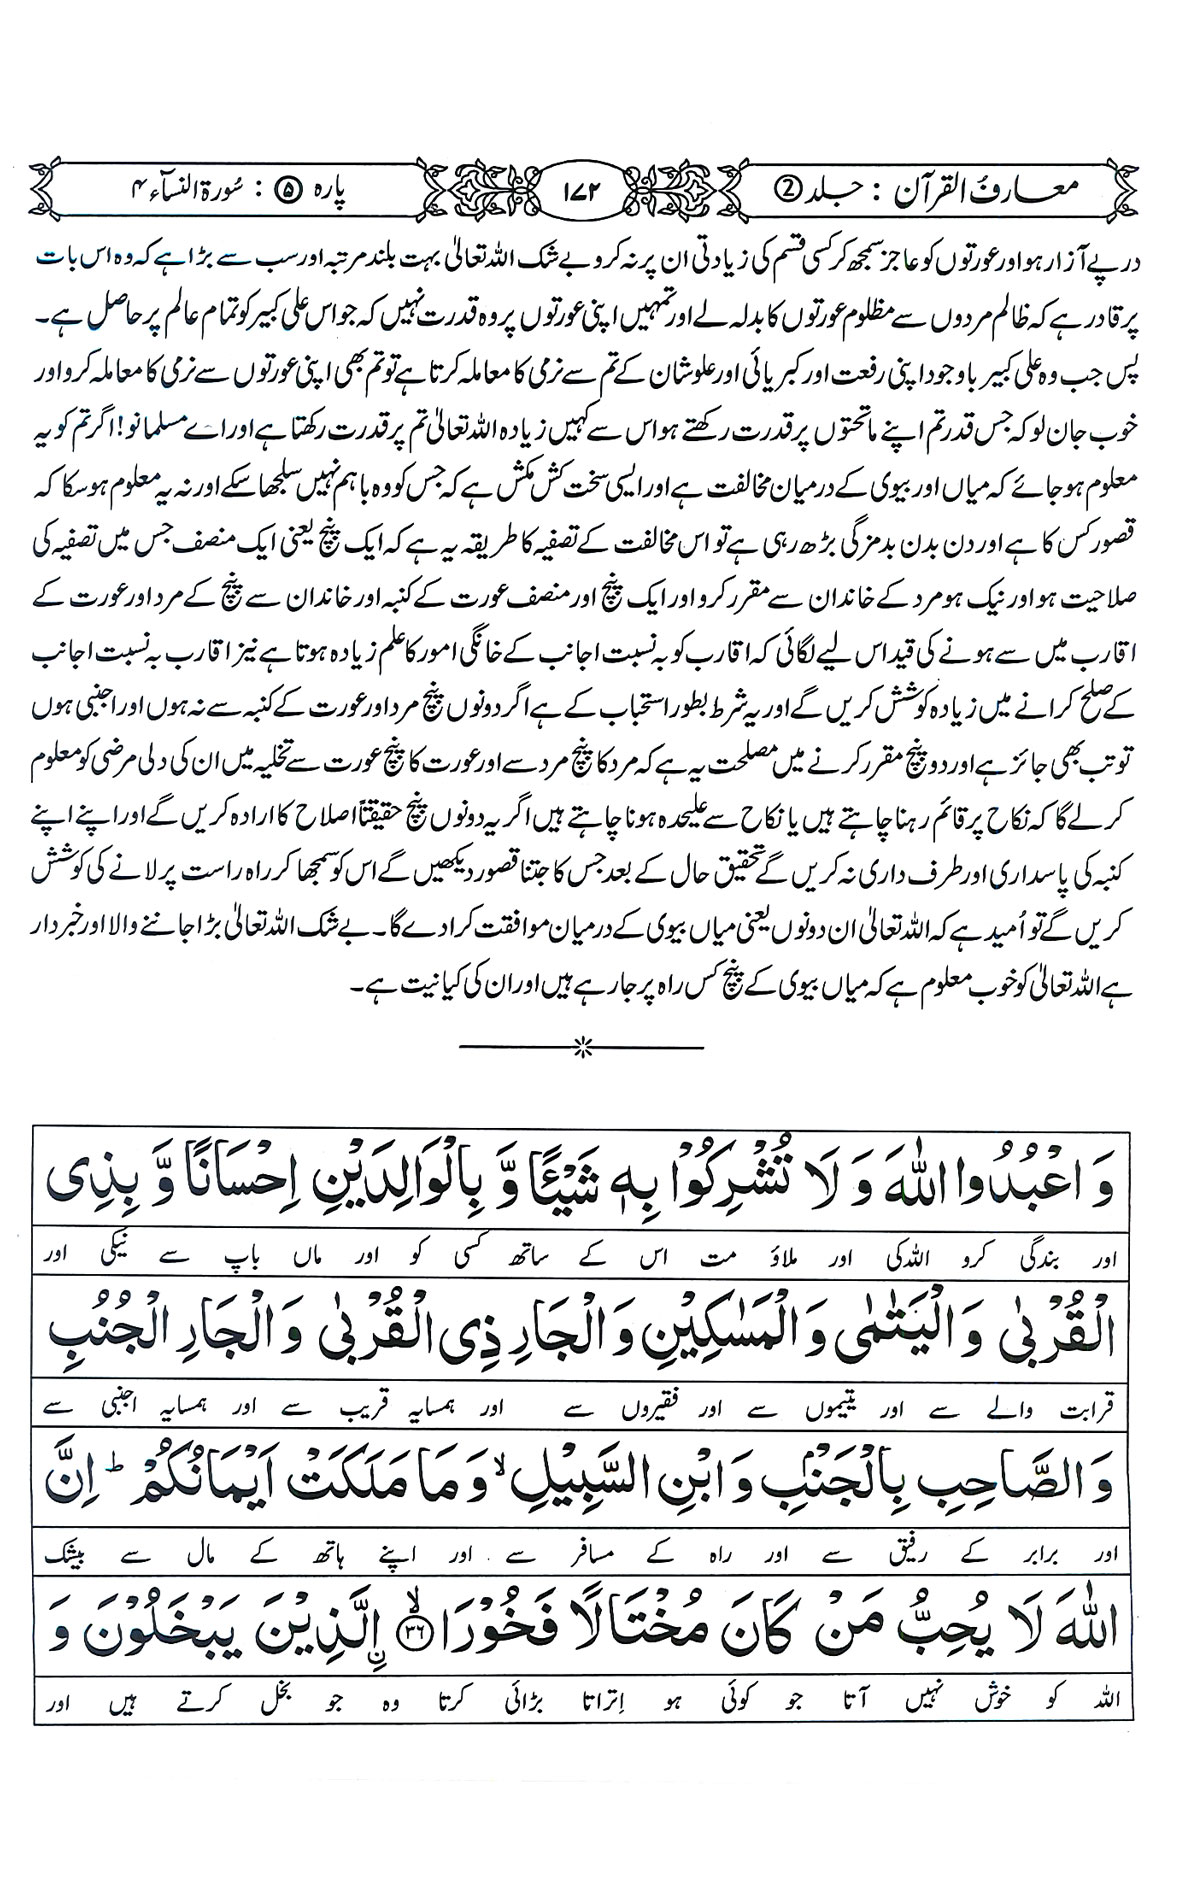 معارفُ القرآن : جلد ②
۱۷۲
پارہ ⑤ : سُورۃ النسآء ۴
درپے آزار ہو اور عورتوں کو عاجز سمجھ کر کسی قسم کی زیادتی ان پر نہ کرو بے شک اللہ تعالیٰ بہت بلند مرتبہ اور سب سے بڑا ہے کہ وہ اس بات
پر قادر ہے کہ ظالم مردوں سے مظلوم عورتوں کا بدلہ لے اور تمہیں اپنی عورتوں پر وہ قدرت نہیں کہ جو اس علی کبیر کو تمام عالم پر حاصل ہے۔
پس جب وہ علی کبیر باوجود اپنی رفعت اور کبریائی اور علو شان کے تم سے نرمی کا معاملہ کرتا ہے تو تم بھی اپنی عورتوں سے نرمی کا معاملہ کرو اور
خوب جان لو کہ جس قدر تم اپنے ماتحتوں پر قدرت رکھتے ہو اس سے کہیں زیادہ اللہ تعالیٰ تم پر قدرت رکھتا ہے اور اے مسلمانو! اگر تم کو یہ
معلوم ہو جائے کہ میاں اور بیوی کے درمیان مخالفت ہے اور ایسی سخت کش مکش ہے کہ جس کو وہ باہم نہیں سلجھا سکے اور نہ یہ معلوم ہو سکا کہ
قصور کس کا ہے اور دن بدن بدمزگی بڑھ رہی ہے تو اس مخالفت کے تصفیہ کا طریقہ یہ ہے کہ ایک پنچ یعنی ایک منصف جس میں تصفیہ کی
صلاحیت ہو اور نیک ہو مرد کے خاندان سے مقرر کرو اور ایک پنچ اور منصف عورت کے کنبہ اور خاندان سے پنچ کے مرد اور عورت کے
اقارب میں سے ہونے کی قید اس لیے لگائی کہ اقارب کو بہ نسبت اجانب کے خانگی امور کا علم زیادہ ہوتا ہے نیز اقارب بہ نسبت اجانب
کے صلح کرانے میں زیادہ کوشش کریں گے اور یہ شرط بطور استحباب کے ہے اگر دونوں پنچ مرد اور عورت کے کنبہ سے نہ ہوں اور اجنبی ہوں
تو تب بھی جائز ہے اور دو پنچ مقرر کرنے میں مصلحت یہ ہے کہ مرد کا پنچ مرد سے اور عورت کا پنچ عورت سے تخلیہ میں ان کی دلی مرضی کو معلوم
کر لے گا کہ نکاح پر قائم رہنا چاہتے ہیں یا نکاح سے علیحدہ ہونا چاہتے ہیں اگر یہ دونوں پنچ حقیقتاً اصلاح کا ارادہ کریں گے اور اپنے اپنے
کنبہ کی پاسداری اور طرف داری نہ کریں گے تحقیق حال کے بعد جس کا جتنا قصور دیکھیں گے اس کو سمجھا کر راہ راست پر لانے کی کوشش
کریں گے تو اُمید ہے کہ اللہ تعالیٰ ان دونوں یعنی میاں بیوی کے درمیان موافقت کرا دے گا۔ بے شک اللہ تعالیٰ بڑا جاننے والا اور خبردار
ہے اللہ تعالیٰ کو خوب معلوم ہے کہ میاں بیوی کے پنچ کس راہ پر جا رہے ہیں اور ان کی کیا نیت ہے۔
وَ اعْبُدُوا اللّٰهَ وَ لَا تُشْرِكُوْا بِهٖ شَيْـًٔا وَّ بِالْوَالِدَيْنِ اِحْسَانًا وَّ بِذِى
اور بندگی کرو اللہ کی اور ملاؤ مت اس کے ساتھ کسی کو اور ماں باپ سے نیکی اور
الْقُرْبٰى وَ الْيَتٰمٰى وَ الْمَسٰكِيْنِ وَ الْجَارِ ذِى الْقُرْبٰى وَ الْجَارِ الْجُنُبِ
قرابت والے سے اور یتیموں سے اور فقیروں سے اور ہمسایہ قریب سے اور ہمسایہ اجنبی سے
وَ الصَّاحِبِ بِالْجَنْۢبِ وَ ابْنِ السَّبِيْلِ ۙ وَ مَا مَلَكَتْ اَيْمَانُكُمْ ؕ اِنَّ
اور برابر کے رفیق سے اور راہ کے مسافر سے اور اپنے ہاتھ کے مال سے بیشک
اللّٰهَ لَا يُحِبُّ مَنْ كَانَ مُخْتَالًا فَخُوْرَا ۙ﴿۳۶﴾ اِۨلَّذِيْنَ يَبْخَلُوْنَ وَ
اللہ کو خوش نہیں آتا جو کوئی ہو اِتراتا بڑائی کرتا وہ جو بخل کرتے ہیں اور